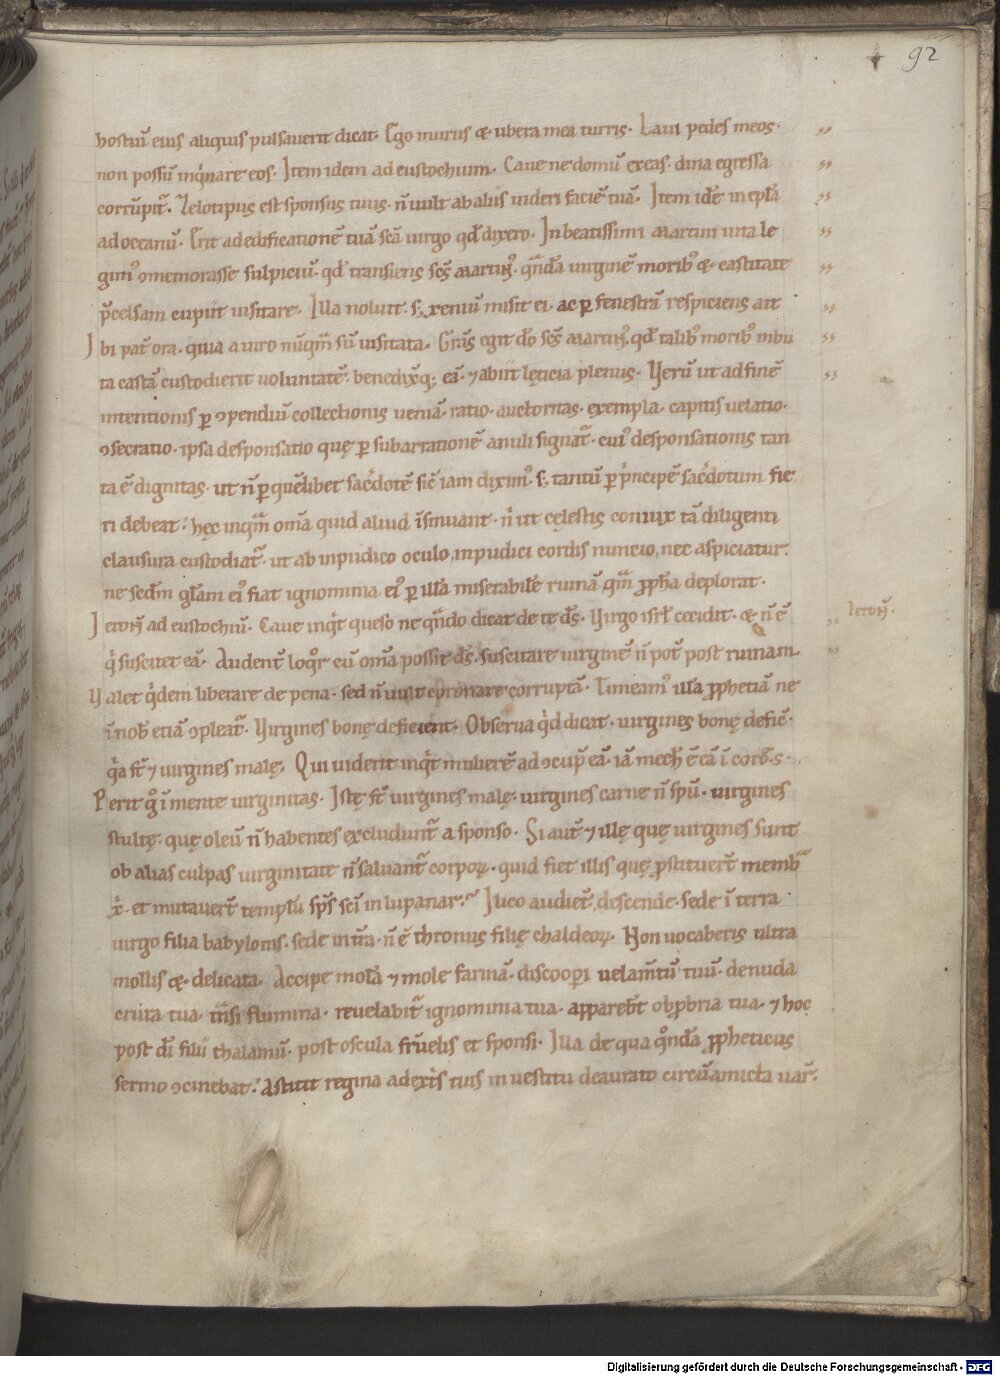 92
hostiū eius aliquis pulsauerit dicat. Ego murus & ubera mea turris. Laui pedes meos.
non possū inq̇nare eos. Item idem ad eustochium. Caue ne domū exeas. dina egressa
corrūpit᷑. Zelotipus est sponsus tuus. n̄ uult ab aliis uideri faciē tuā. Item idē in ep̄la
ad oceanū. Erit ad edificationē tuā sc̄a uirgo qđ dixero. In beatissimi martini uita le
gim᷒ ꝯmemorasse sulpiciū. qđ transiens sc̄s martin᷒. qn̄dā uirginē morib᷒ & castitate
p̄celsam cupiit uisitare. Illa noluit. s; xeniū misit ei. ac ꝑ fenestrā respiciens ait
Ibi pat̄ ora. quia a uiro nūqm̄ sū uisitata. Grās egit dō sc̄s martin᷒. qđ talib᷒ morib᷒ inbu
ta castā custodierit uoluntatē. benedixq; eā. ⁊ abiit lęticia plenus. Uerū ut ad finē
intentionis ꝑ ꝯpendiū collectionis ueniā. ratio. auctoritas. exempla. capitis uelatio.
ꝯsecratio. ipsa desponsatio quę ꝑ subarrationē anuli signat᷑. cui᷒ desponsationis tan
ta ē dignitas. ut n̄ ꝑ quēlibet sac̓dotē sic̄ iam dixim᷒. s; tantū ꝑ p̓ncipē sac̓dotum fie
ri debeat. hęc inqm̄ om̄a quid aliud īsinuant. n̓ ut cęlestis coniux tā diligenti
clausura custodiat᷑. ut ab inpudico oculo, inpudici cordis nuncio, nec aspiciatur.
ne sedm̄ gl̄am ei᷒ fiat ignominia ei᷒ ꝑ illā miserabilē ruinā qm̄ ꝓph̄a deplorat.
Ieron̄ ad eustochiū. Caue inq̇t queso ne qn̄do dicat de te dс̄. Uirgo isrl̄ cecidit. & n̄ ē
Ieron̄.
q̇ suscitet eā. Audent̄ loq̊r cū om̄a possit dс̄. suscitare uirginē n̄ pot̄ post ruinam.
Ualet q̇dem liberare de pena. sed n̄ uult coronare corruptā. Timeam᷒ illā ꝓphetiā ne
ī nob̄ etiā ꝯpleat᷑. Uirgines bonę deficient. Obserua q̇d dicat. uirgines bonę defic̄.
q̇a st̄ ⁊ uirgines malę. Qui uiderit inq̇t mulierē ad ꝯcup̄ eā. iā mech̄ ē eā ī corđ. s.
Perit g̊ ī mente uirginitas. Istę st̄ uirgines malę. uirgines carne n̄ spū. uirgines
stultę. quę oleū n̄ habentes excludunt᷑ a sponso. Si aut̄ ⁊ illę quę uirgines sunt
ob alias culpas uirginitate n̄ saluant᷑ corporꝫ. quid fiet illis quę ꝓstituert̄ memb̄
x̓. et mutauert̄ templū sp̄s sc̄i in lupanar. Ilico audiet᷑, descende. sede ī terra
uirgo filia babylonis. sede in t̄ra. n̄ ē thronus filię chaldeoꝝ. Non uocaberis ultra
mollis & delicata. Accipe molā ⁊ mole farinā. discoopi uelam̄tū tuū. denuda
crura tua. tn̄si flumina. reuelabit᷑ ignominia tua. apparebt̄ obꝓbria tua. ⁊ hoc
post dī filii thalamū. post oscula fr̄uelis et sponsi. Illa de qua q̊ndā ꝓpheticus
sermo ꝯcinebat. Astitit regina a dext̓s tuis in uestitu deaurato circūamicta uar̄.
Digitalisierung gefördert durch die Deutsche Forschungsgemeinschaft - DFG